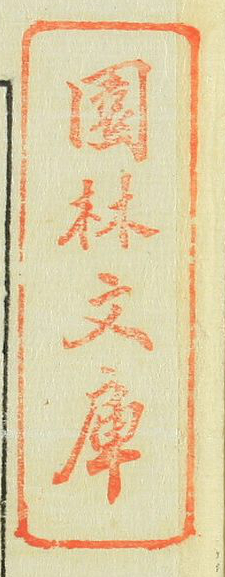 園林文庫